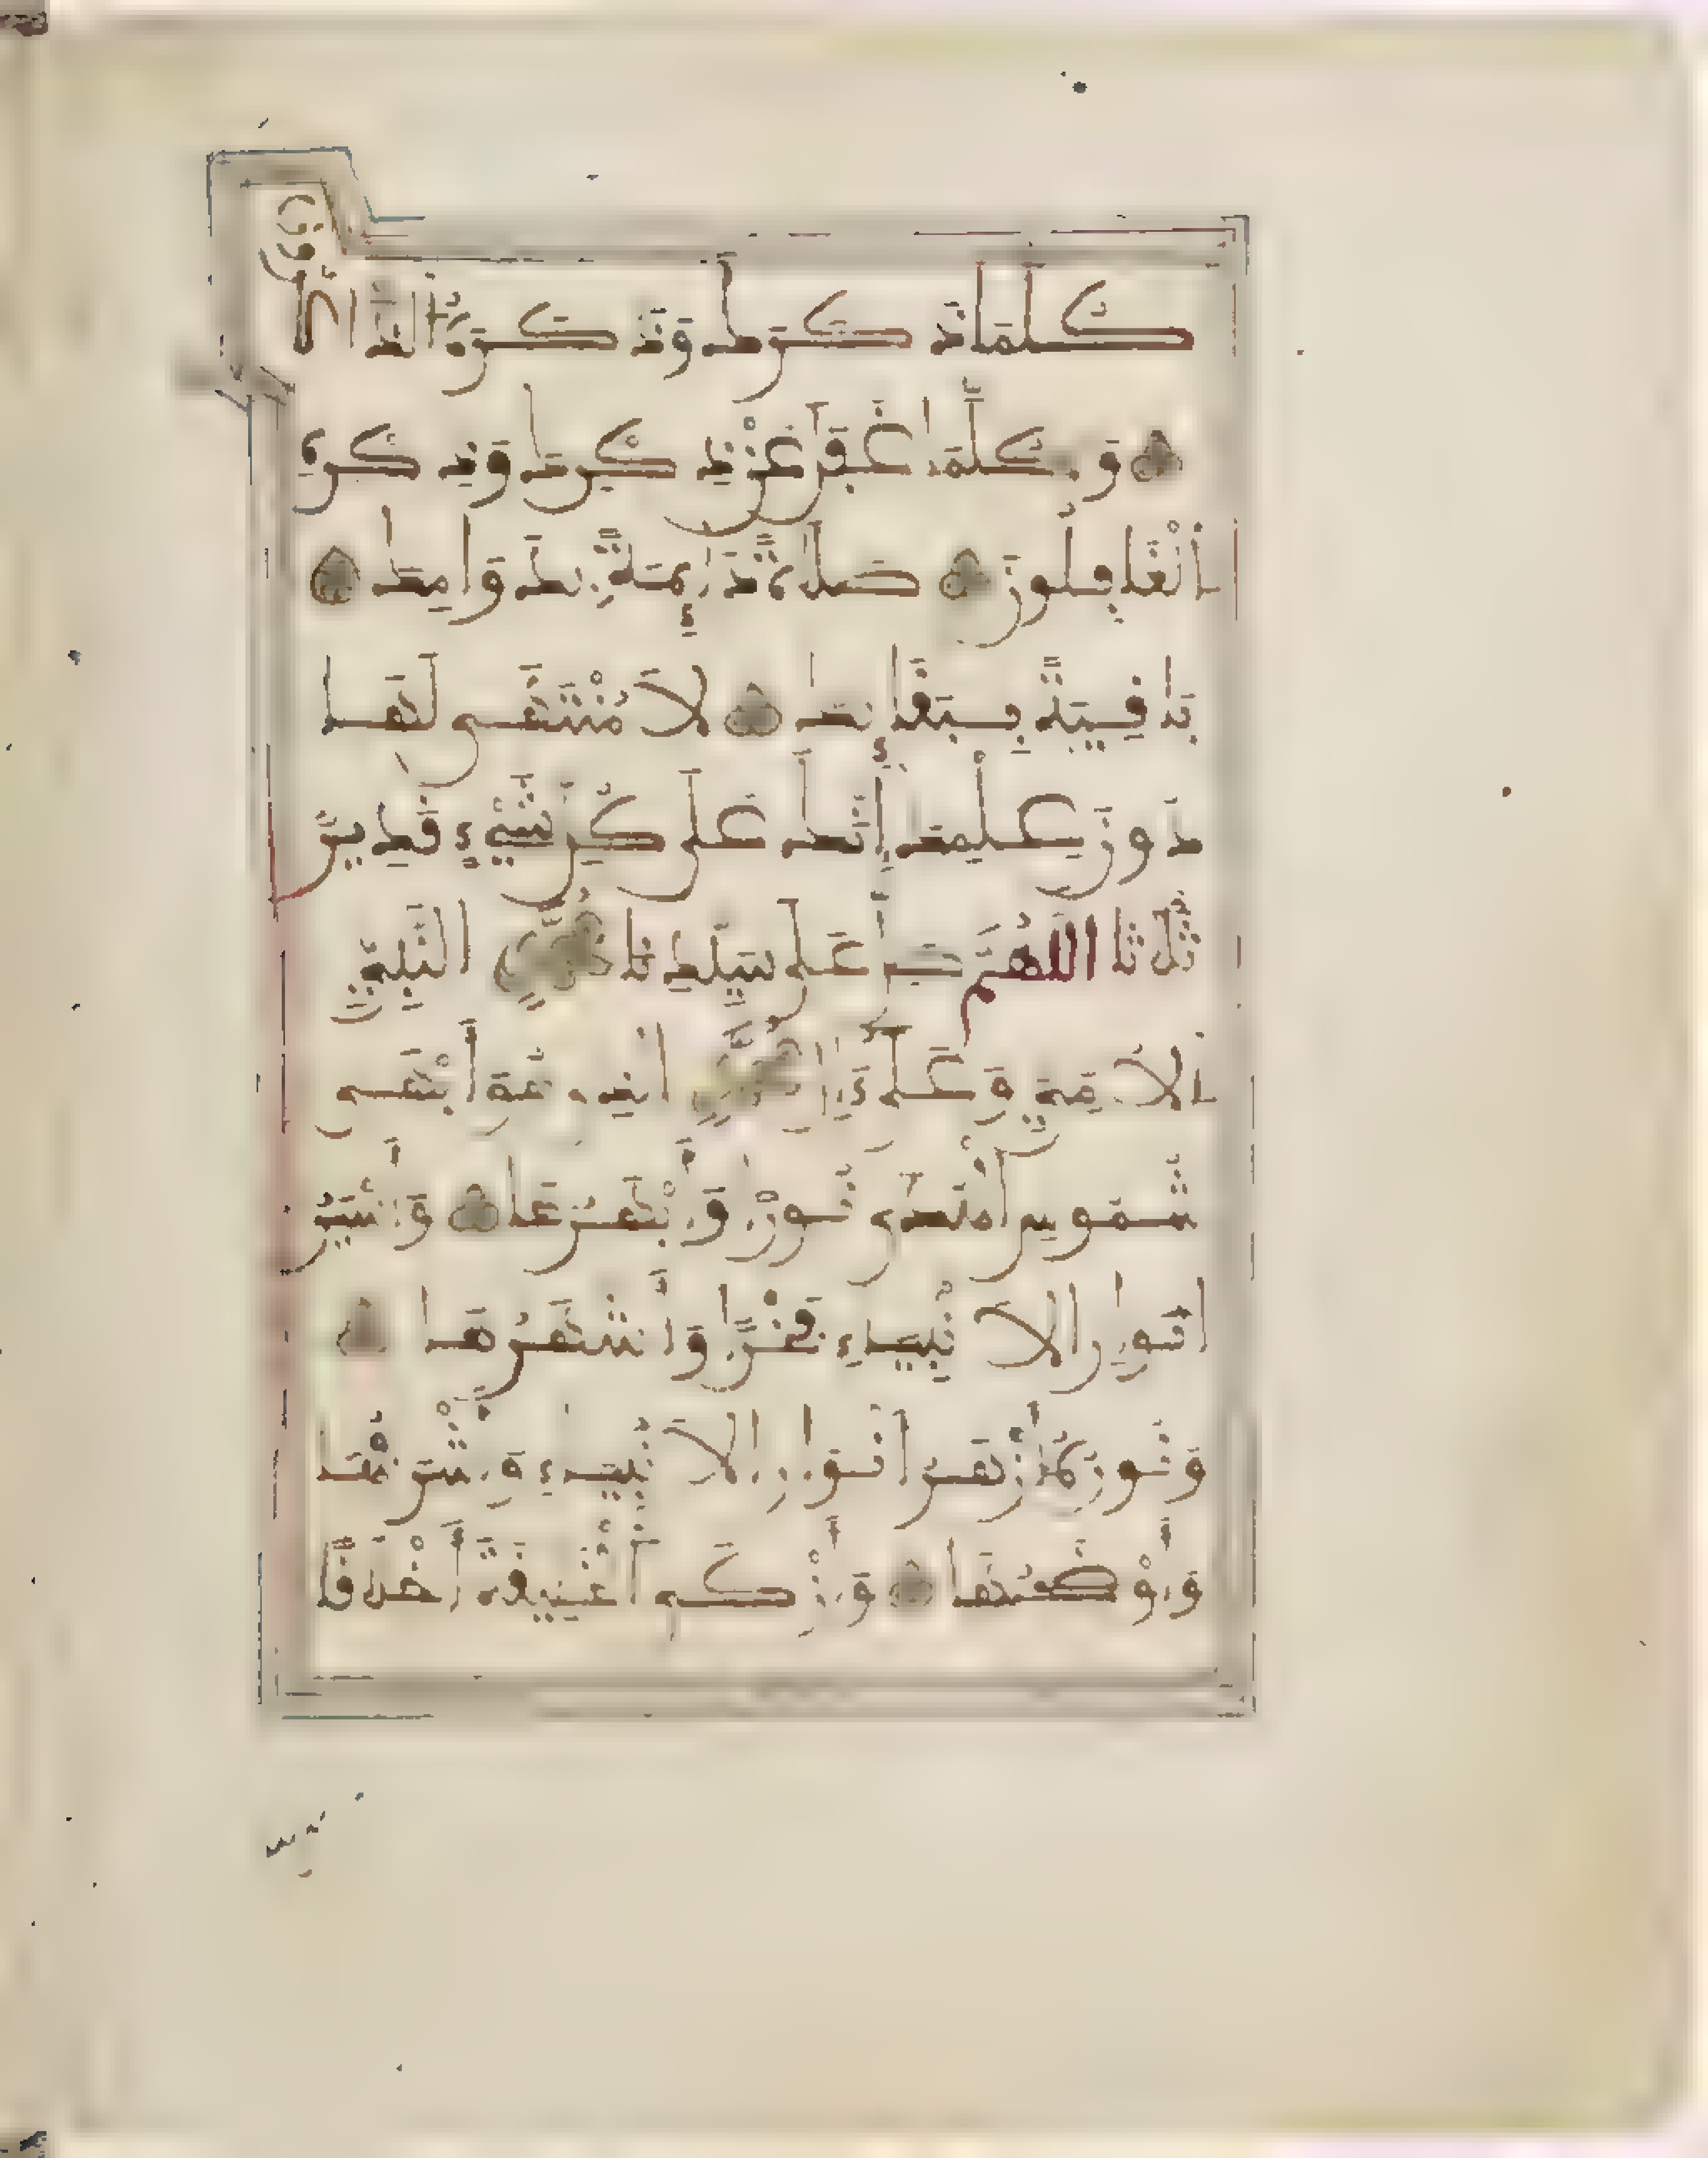 كُلَّمَا ذَكَرَكَ وَذَكَرَهُ الذَّاكِرُونَ
وَكُلَّمَا غَفَلَ عَنْ ذِكْرِكَ وَذِكْرِهِ
الْغَافِلُونَ صَلَاةً دَائِمَةً بِدَوَامِكَ
بَاقِيَةً بِبَقَائِكَ لَا مُنْتَهَى لَهَا
دُونَ عِلْمِكَ إِنَّكَ عَلَى كُلِّ شَيْءٍ قَدِيرٌ
ثَلَاثًا اللَّهُمَّ صَلِّ عَلَى سَيِّدِنَا مُحَمَّدٍ النَّبِيِّ
الْأُمِّيِّ وَعَلَى آلِ مُحَمَّدٍ الَّذِي هُوَ أَبْهَى
شُمُوسِ الْهُدَى نُورًا وَأَبْهَرُهَا وَأَسْيَرُ
الْأَنْبِيَاءِ فَخْرًا وَأَشْهَرُهَا
وَنُورُهُ أَزْهَرُ أَنْوَارِ الْأَنْبِيَاءِ وَأَشْرَفُهَا
وَأَوْضَحُهَا وَأَزْكَى الْخَلِيقَةِ أَخْلَاقًا